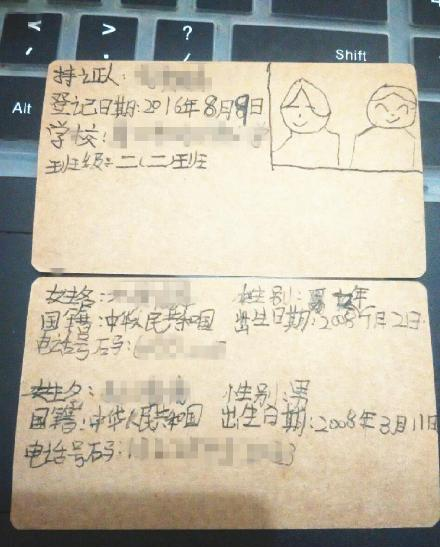 < > ?
, . /
Shift
Alt
持证人:
登记日期:2016年8月9日
学校:
班级:二(二)班
姓名: 性别:
国籍:中华人民共和国 出生日期:2008年 月2日
电话号码:
姓名: 性别:男
国籍:中华人民共和国 出生日期:2008年3月11日
电话号码: